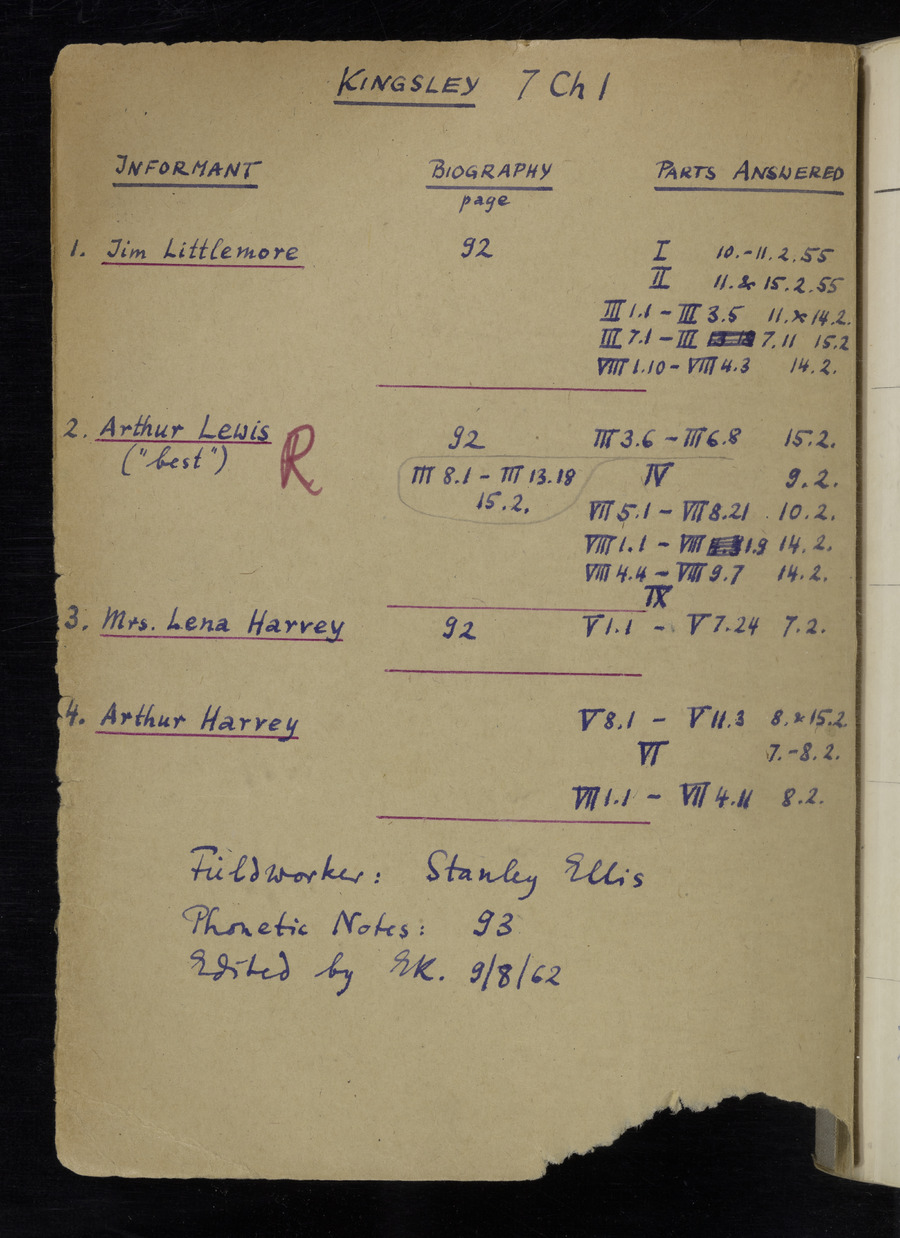 KINGSLEY 7 Ch 1
INFORMANT BIOGRAPHY PARTS ANSWERED
page
1. Jim Littlemore 92 I 10.-11.2.55
II 11. & 15.2.55
III 1.1 - III 3.5 11. & 14.2.
III 7.1 - III 7.11 15.2
VIII 1.10 - VIII 4.3 14.2.
2. Arthur Lewis 92 III 3.6 - III 6.8 15.2.
("best") R III 8.1 - III 13.18 IV 9.2.
15.2. VII 5.1 - VII 8.21 10.2.
VIII 1.1 - VIII 1.9 14.2.
VIII 4.4 - VIII 9.7 14.2.
IX
3. Mrs. Lena Harvey 92 V 1.1 - V 7.24 7.2.
4. Arthur Harvey V 8.1 - V 11.3 8. & 15.2.
VI 7.-8.2.
VII 1.1 - VII 4.11 8.2.
Fieldworker: Stanley Ellis
Phonetic Notes: 93
Edited by EK. 9/8/62